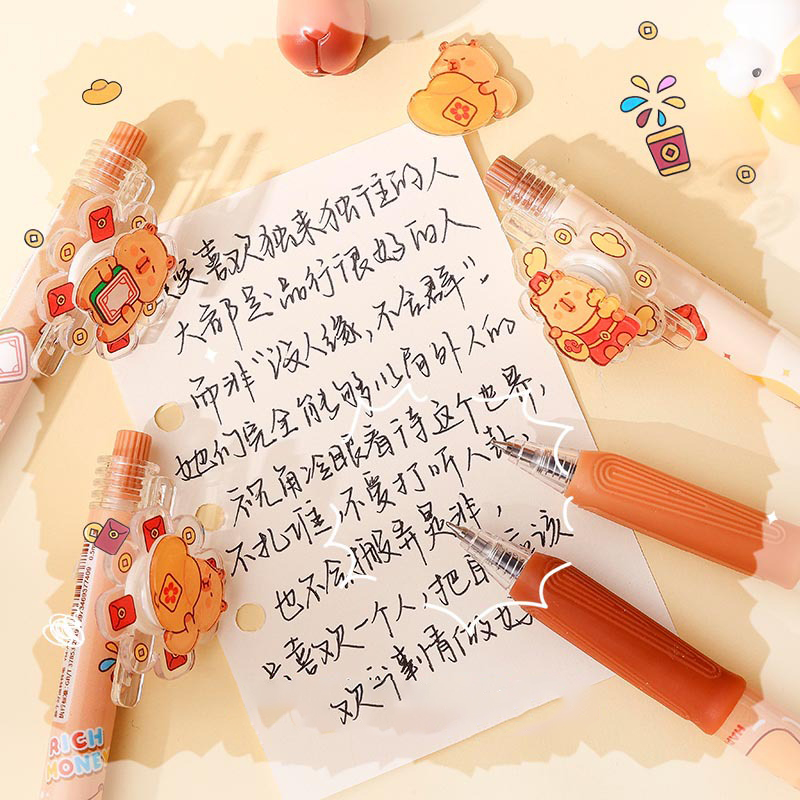 喜欢独来独往的人
大部是品行很好的人
而非“没人缘，不合群”。
她们完全能够以局外人的
视角冷眼看待这个世界，
不扎堆，不爱打听人
也不会搬弄是非，
只喜欢一个人，把自 应该
欢 事情做好
RICH
MONEY
0.5m